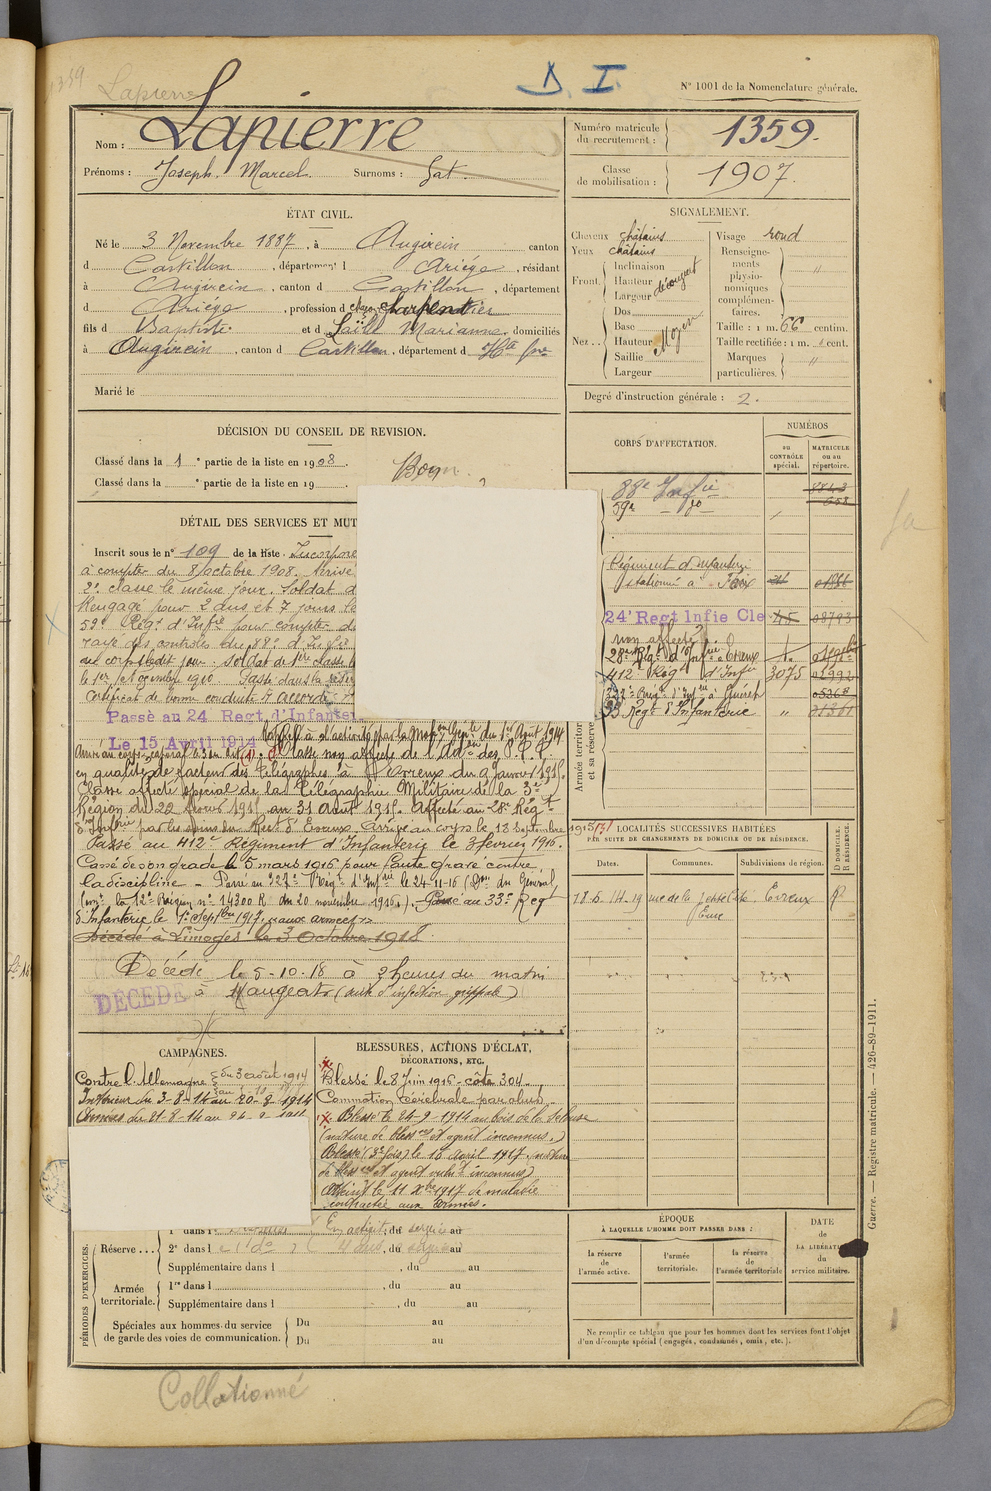 1359
Lapierre
D. I.
N° 1001 de la Nomenclature générale.
Nom : Lapierre
Prénoms : Joseph. Marcel. Surnoms : Jat.
Numéro matricule du recrutement : 1359.
Classe de mobilisation : 1907.
ÉTAT CIVIL.
Né le 3 Novembre 1887, à Augirein canton
d Castillon, département d Ariége, résidant
à Augirein, canton d Castillon, département
d Ariége, profession d charpentier
fils d Baptiste et d Marianne, domiciliés
à Augirein, canton d Castillon, département d Hte Gne
Marié le
SIGNALEMENT.
Cheveux châtains
Yeux châtains
Front. Inclinaison
Hauteur découvert
Largeur
Nez.. Dos
Base
Hauteur Moyen
Saillie
Largeur
Visage rond
Renseignements physionomiques complémentaires. "
Taille : 1 m. 66 centim.
Taille rectifiée : 1 m. cent.
Marques particulières. "
Degré d'instruction générale : 2.
DÉCISION DU CONSEIL DE REVISION.
Classé dans la 1 e partie de la liste en 1908. Bon
Classé dans la e partie de la liste en 19
CORPS D'AFFECTATION.
NUMÉROS
au CONTRÔLE spécial.
MATRICULE ou au répertoire.
88e Infie
59e do
Régiment d'infanterie
stationné à Foix
24e Regt Infie Cle 45 08793
non affecté
28e Régt d'Infie Evreux
412e Rég. d'Infie 3075 02992
à Guéret
33 Régt d'Infanterie " 21361
Armée territor
et sa réserve
DÉTAIL DES SERVICES ET MUT
Inscrit sous le n° 109 de la liste. Incorporé
à compter du 8 octobre 1908. Arrivé
2e classe le même jour. Soldat d
Rengagé pour 2 ans et 7 jours le
52e Régt d'Infie pour compter du
rayé des contrôles du 88e d'Infie
au corps ledit jour. Soldat de 1ère classe l
le 1er Novembre 1910 Passé dans la réser
Certificat de bonne conduite accordé
Passé au 24 Regt d'Infanter
Le 15 Avril 1914
Rappelé à l'activité par la Mobon Génle du 1er Août 1914
Classé non affecté de l'Adon des P.T.T.
en qualité de facteur des Télégraphes à Evreux du 9 janvier 1915.
Classé affecté spécial de la Télégraphie Militaire de la 3e
Région du 22 février 1915 au 31 Août 1915. Affecté au 28e Régt
d'Infie par les soins du Rect d'Evreux Arrivé au corps le 13 Septembre 1915
Passé au 412e Régiment d'Infanterie le 3 février 1916.
Cassé de son grade le 5 mars 1916 pour faute grave contre
la discipline - Passé au 327e Régt d'Infie le 24-11-16 (Don du Général
Ct la 12e Région n° 14300 R du 20 novembre 1916). Passé au 33e Régt
d'Infanterie le 1er Septbre 1917, "aux armées".
Décédé à Limoges le 3 Octobre 1918.
Décédé le 5-10-18 à 3 heures du matin
à Naugeat (suite d'infection grippale)
DÉCÉDÉ
LOCALITÉS SUCCESSIVES HABITÉES
PAR SUITE DE CHANGEMENTS DE DOMICILE OU DE RÉSIDENCE.
Dates. Communes. Subdivisions de région. D DOMICILE. R RÉSIDENCE.
18.5.14 19 rue de la Evreux R
Eure
CAMPAGNES.
Contre l'Allemagne du 3 août 1914
Intérieur du 3-8-14 au 20-8-1914
Armées du 21-8-14 au
BLESSURES, ACTIONS D'ÉCLAT,
DÉCORATIONS, ETC.
Blessé le 8 Juin 1916 - côte 304.
Commotion cérébrale par obus.
Blessé le 24-9-1914 au bois de la
(nature de blessre et agent inconnus.)
Blessé (3e fois) le 16 Avril 1917 (nature
de blessre et agent vulnt inconnus)
Atteint le 11 Xbre 1917 de maladie
contractée aux armées.
PÉRIODES D'EXERCICES.
Réserve... 1er dans l En activité, du service au
2e dans l do du au
Supplémentaire dans l , du au
Armée territoriale. 1re dans l , du au
Supplémentaire dans l , du au
Spéciales aux hommes du service de garde des voies de communication. Du au
Du au
ÉPOQUE
À LAQUELLE L'HOMME DOIT PASSER DANS :
la réserve de l'armée active.
l'armée territoriale.
la réserve de l'armée territoriale
DATE de LA LIBÉRATION du service militaire.
Ne remplir ce tableau que pour les hommes dont les services font l'objet
d'un décompte spécial (engagés, condamnés, omis, etc.).
Guerre. — Registre matricule. — 426-89-1911.
Collationné